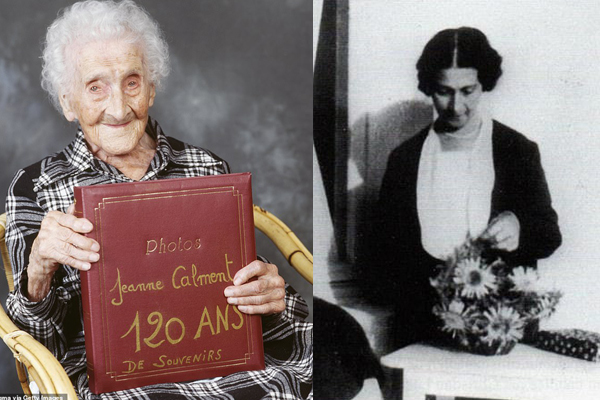 Photos
Jeanne Calment
120 ANS
DE SOUVENIRS
via Getty Images